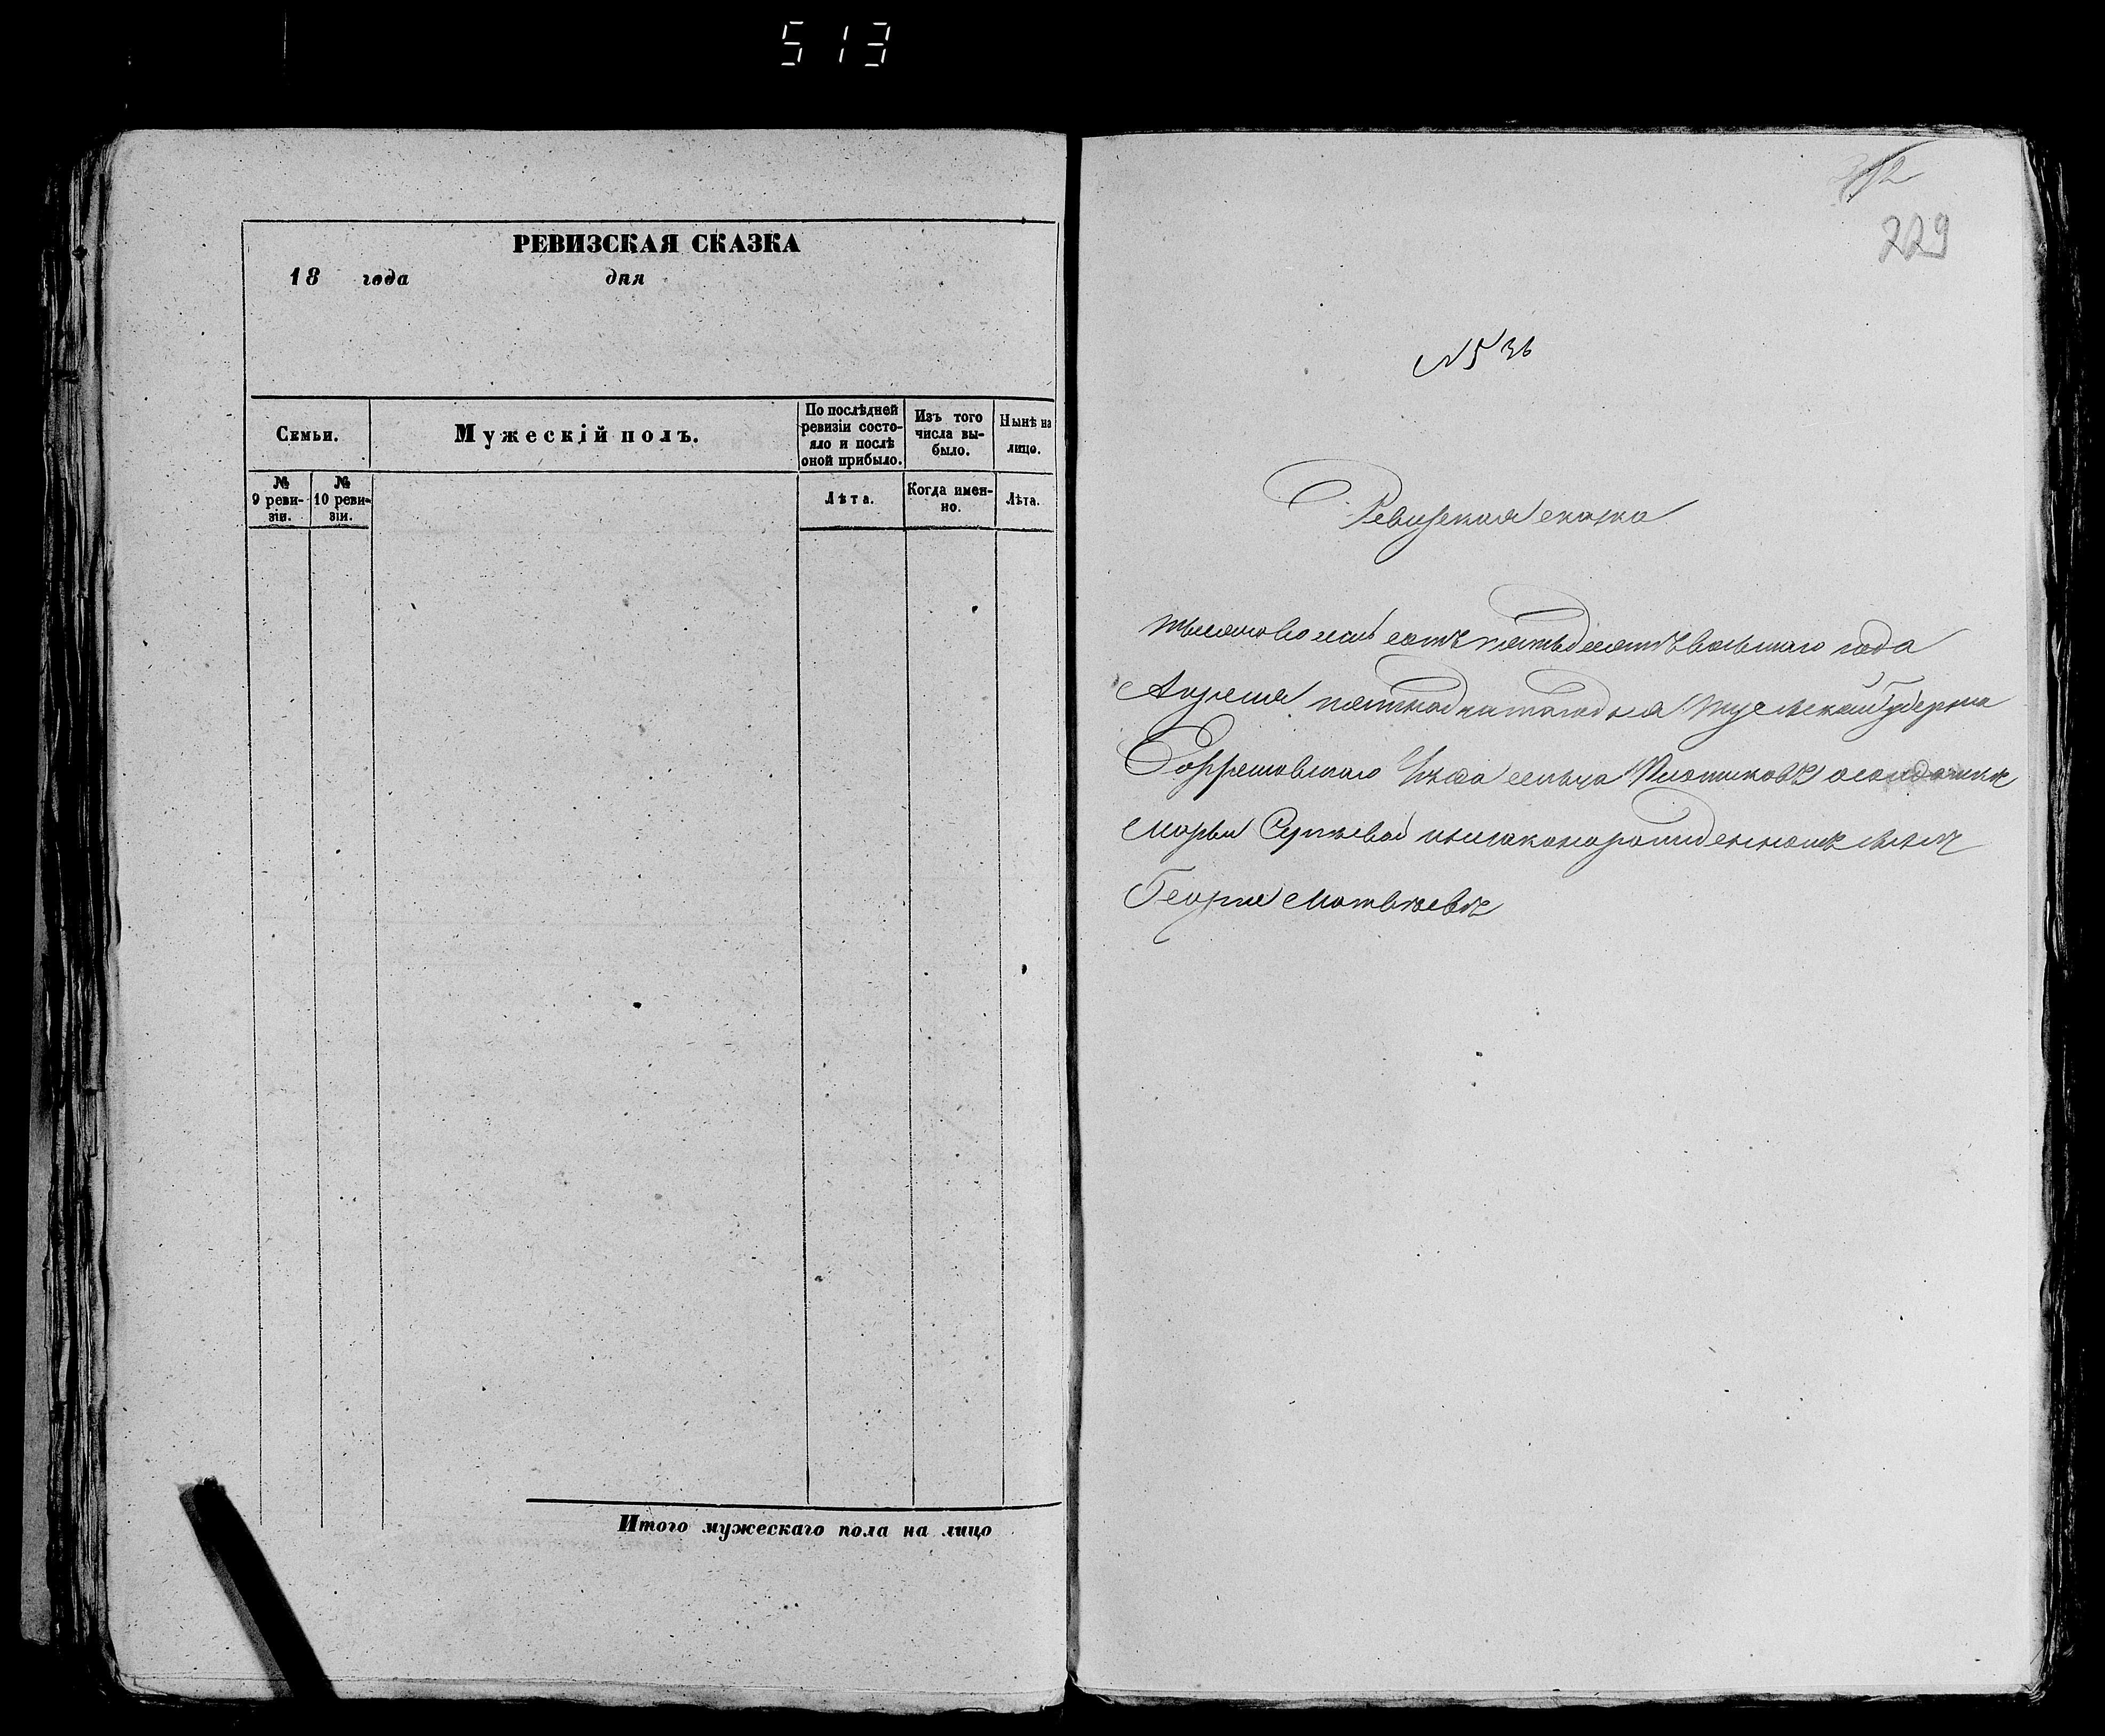 513
РЕВИЗСКАЯ СКАЗКА
18 года дня
Семьи.
Мужескій полъ.
По послѣдней ревизіи состо-
яло и послѣ оной прибыло.
Изъ того числа вы-
было.
Нынѣ на лицо.
№ 9 реви-
зіи.
№ 10 реви-
зіи.
Лѣта.
Когда имен-
но.
Лѣта.
Итого мужескаго пола на лицо
229
№ 36
Ревизская сказка
тысяча восемь сотъ пятьдесятъ восьмаго года
Апреля пятнадцатаго дня Тульской Губерніи
Ефремовскаго Уѣзда сельца Плотиковъ
Марьи Сергѣевой незаконорожденномъ сынѣ
Георгіе Матвѣевѣ